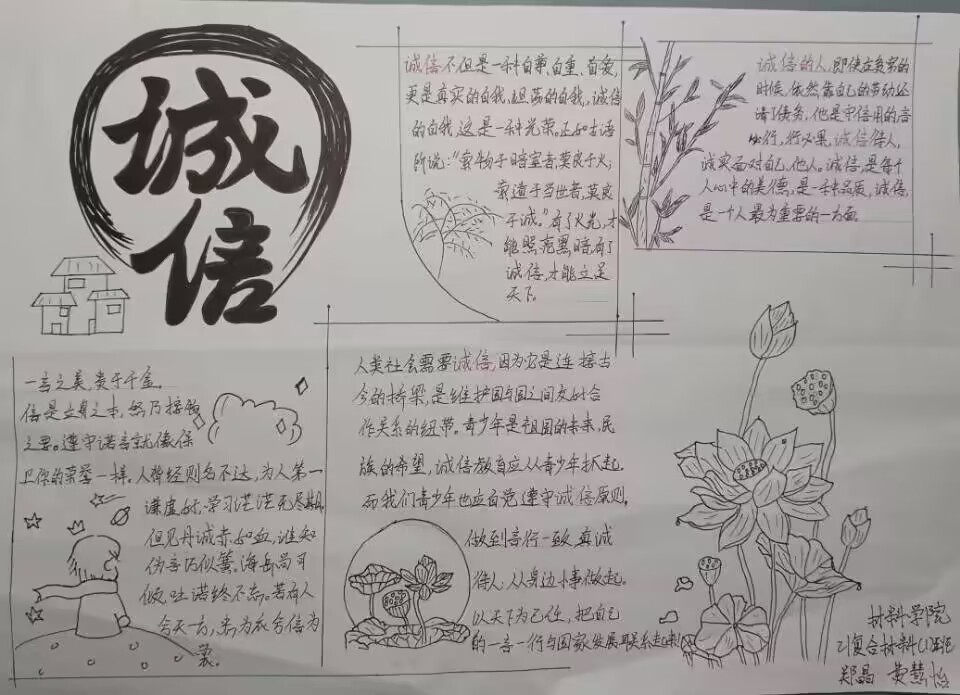 诚
信
诚信不但是一种自尊、自重、自爱,
更是真实的自我,坦荡的自我,诚信
的自我,这是一种光荣。正如古语
所说:“索物于暗室者,莫良于火;
索道于当世者,莫良
于诚。”有了火光,才
能照亮黑暗,有了
诚信,才能立足
天下。
诚信的人,即使在贫穷的
时候,依然靠自己的劳动还
清债务,他是守信用的,言
必行,行必果,诚信待人,
诚实面对自己、他人。诚信,是每个
人心中的美德,是一种品质,诚信,
是一个人最为重要的一方面。
一言之美,贵于千金。
信是立身之本,
之要。遵守诺言就像保
卫你的荣誉一样。人背经则名不达,为人第一
谦虚好,学习茫茫无尽期。
但见丹诚赤如血,谁知
伪言巧似簧。海岳尚可
倾,吐诺终不忘。若有人
兮天一方,忠为衣兮信为
裳。
人类社会需要诚信,因为它是连接古
今的桥梁,是维护国与国之间友好合
作关系的纽带。青少年是祖国的未来,民
族的希望,诚信教育应从青少年抓起。
而我们青少年也应自觉遵守诚信原则,
做到言行一致,真诚
待人,从身边小事做起。
以天下为己任,把自己
的一言一行与国家发展联系起来!
材料学院
21复合材料(1)班
郑晶 黄慧怡